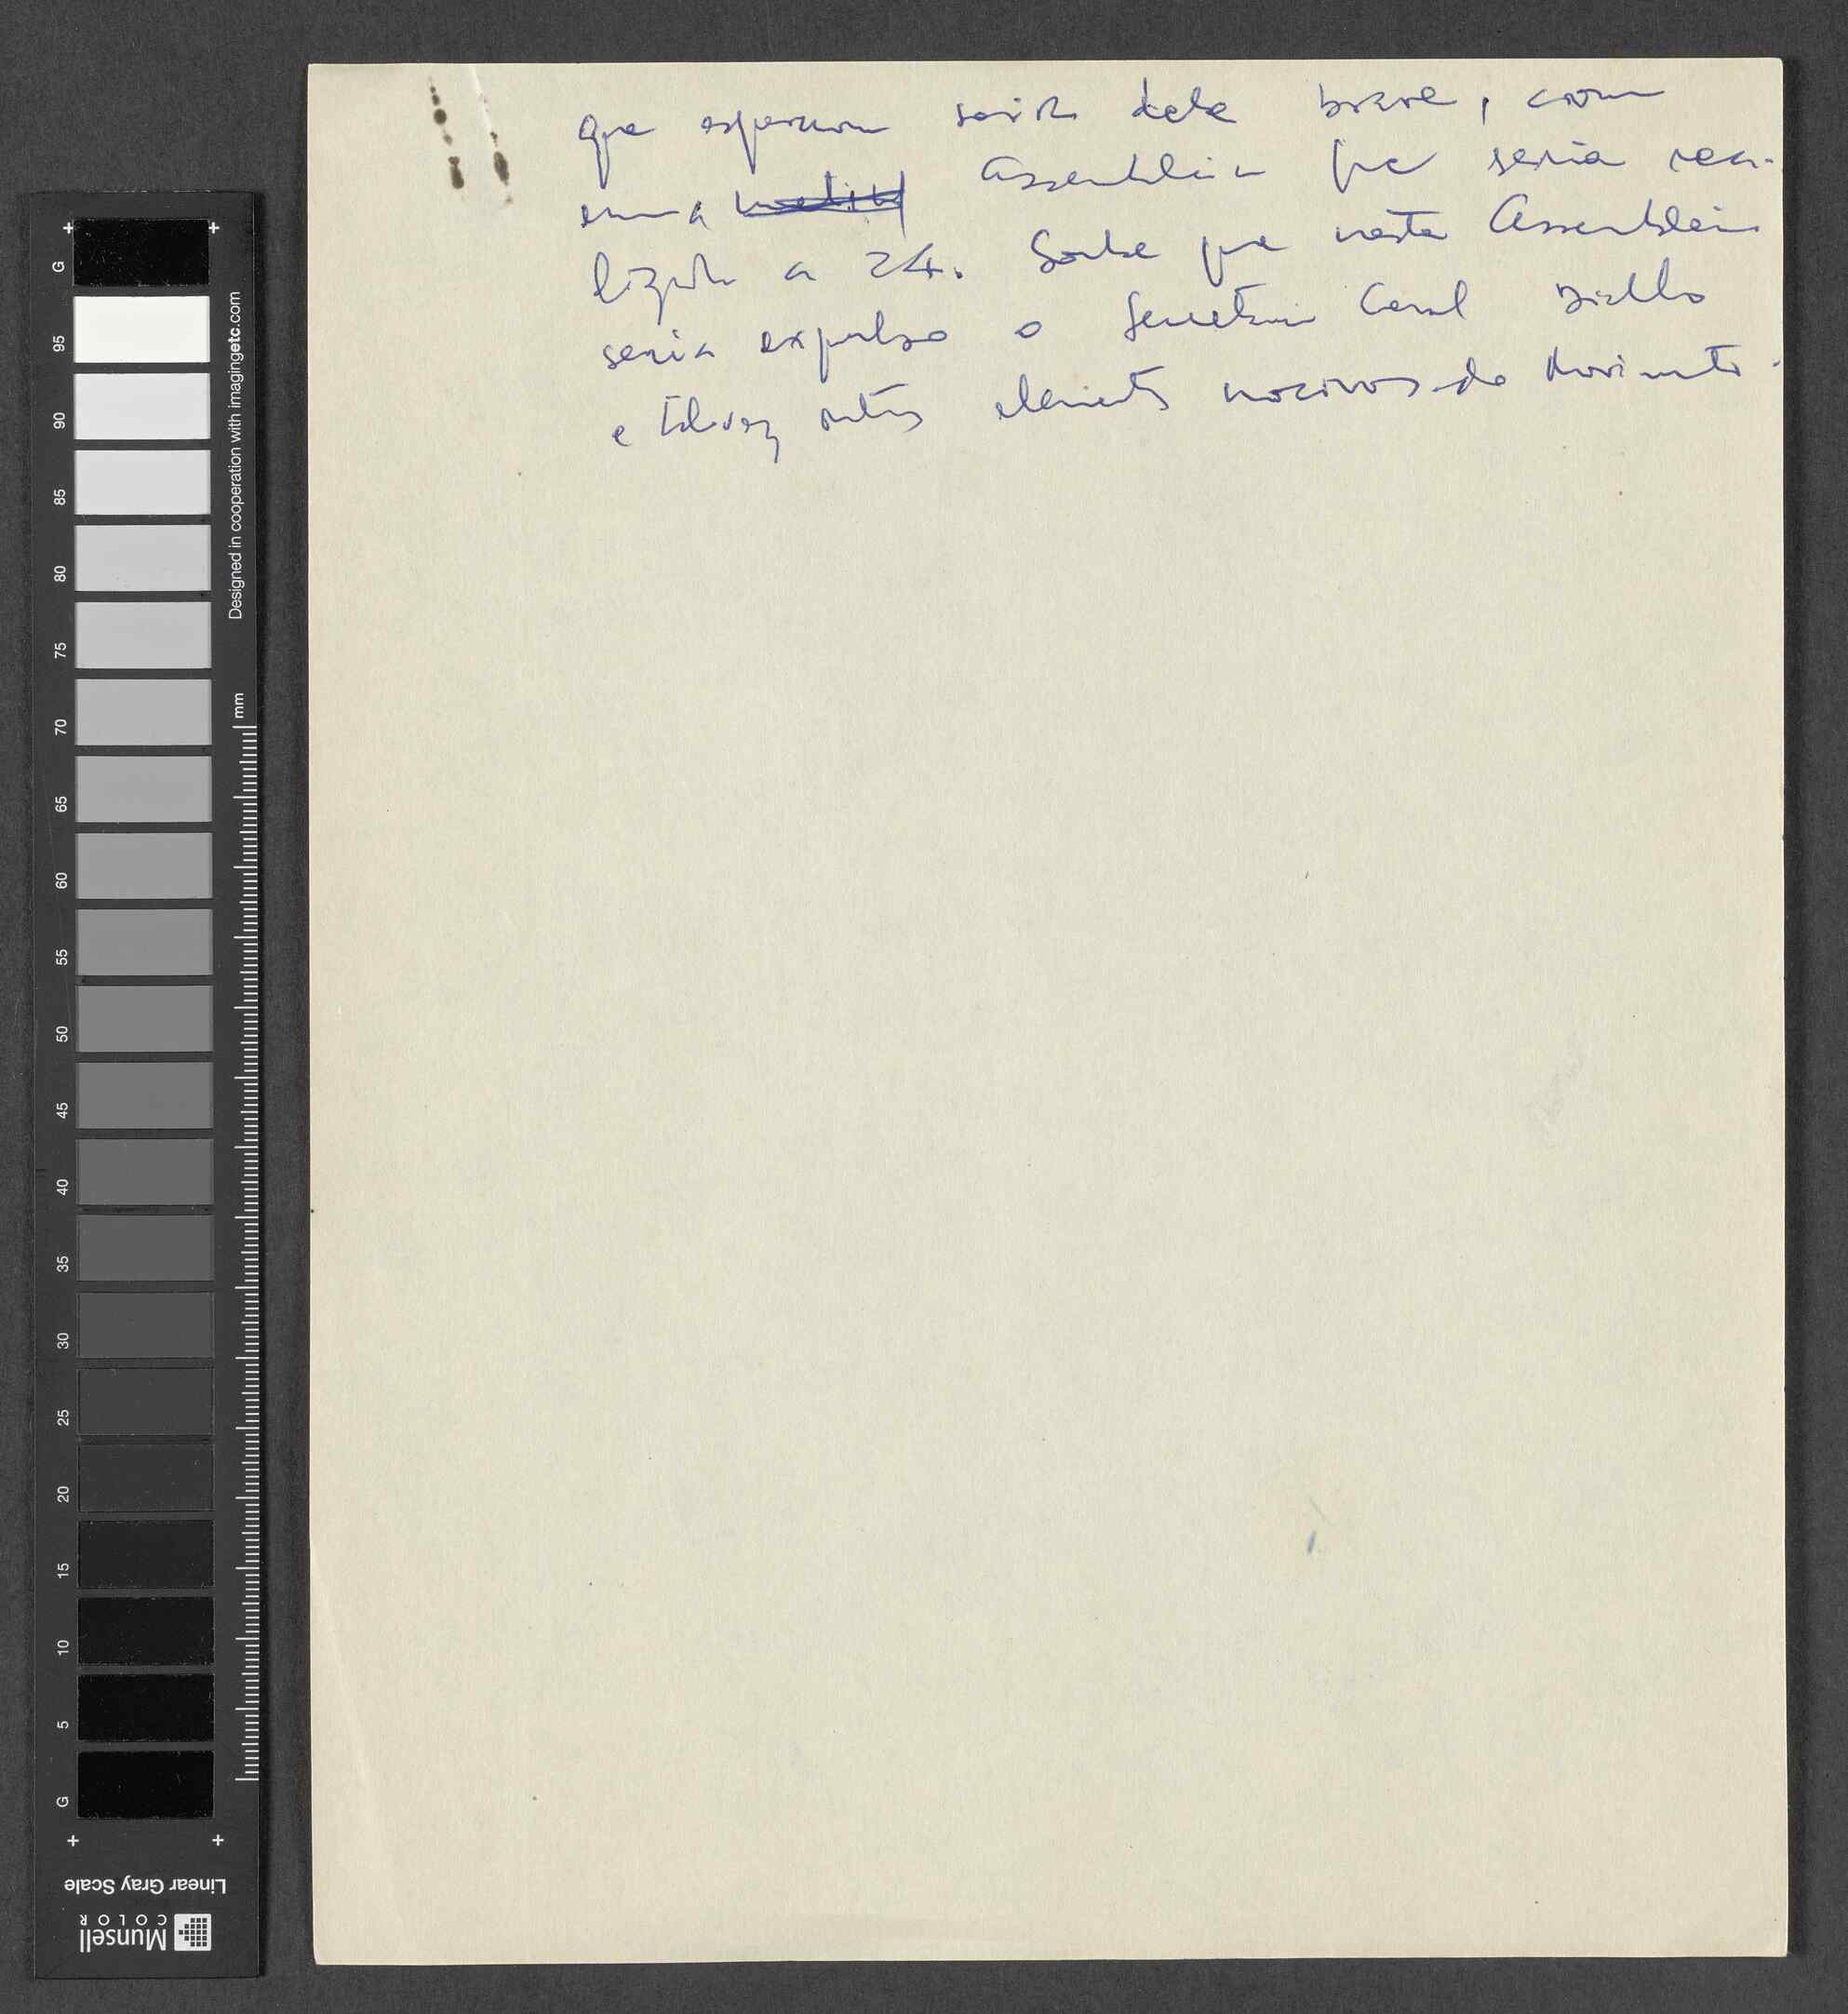 que esperavam sair dele breve, com
uma Assembleia que seria rea-
lizada a 24. Soube que nesta Assembleia
seria expulso o Secretário Geral Diallo
e talvez outros elementos nocivos do Movimento.
Designed in cooperation with imagingetc.com
mm
G
95
90
85
80
75
70
65
60
55
50
45
40
35
30
25
20
15
10
5
G
Linear Gray Scale
Munsell
COLOR